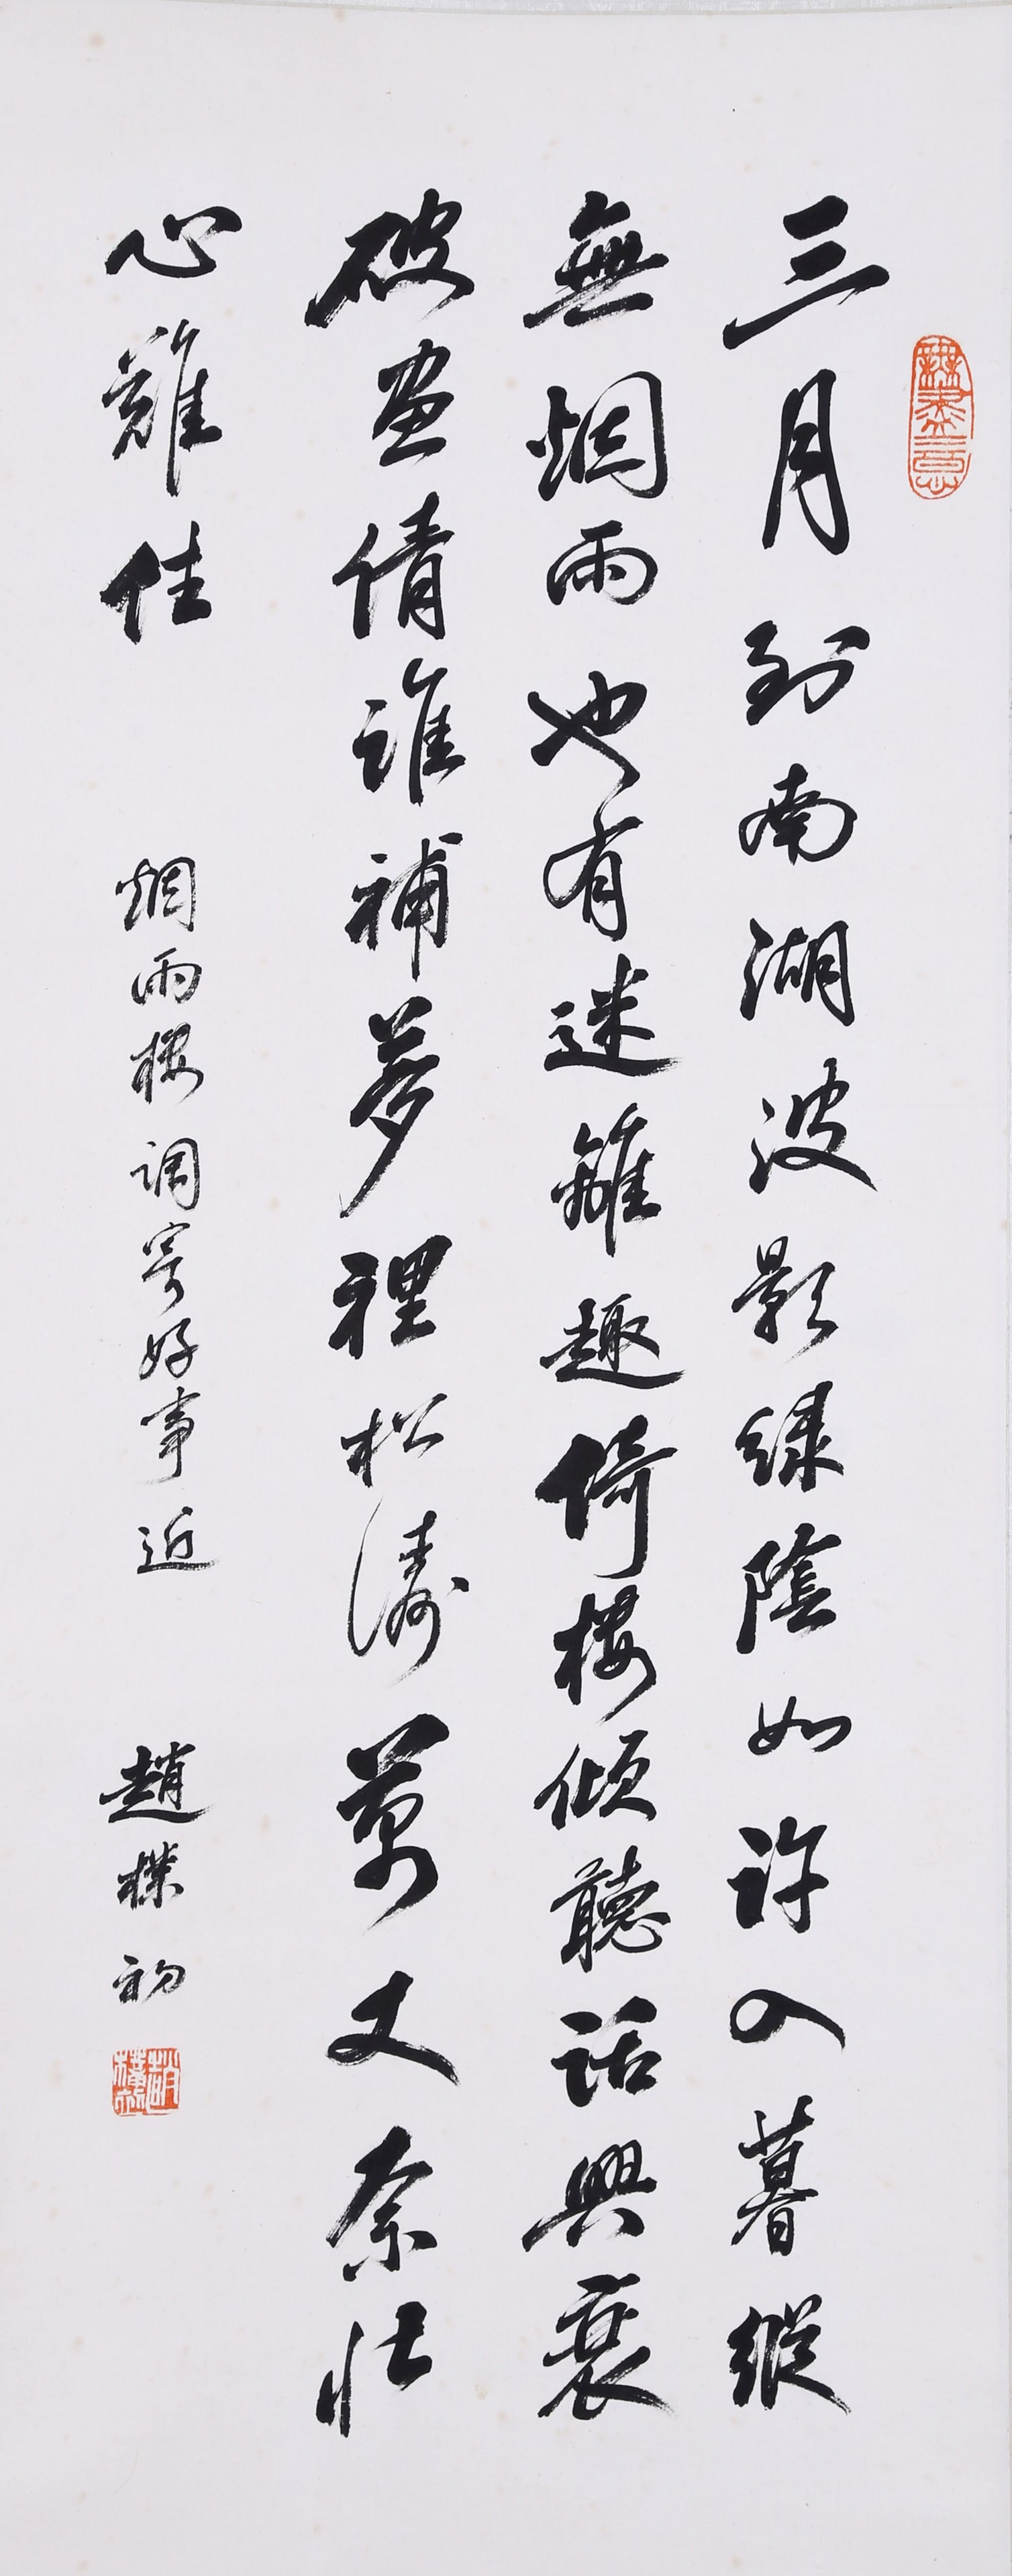 無盡意
三月到南湖波影緑陰如許入暮縱
無烟雨也有迷離趣倚楼傾聽話興衰
破畫倩誰補夢裡松濤萬丈奈壮
心難住
烟雨楼調寄好事近
趙樸初
趙樸初